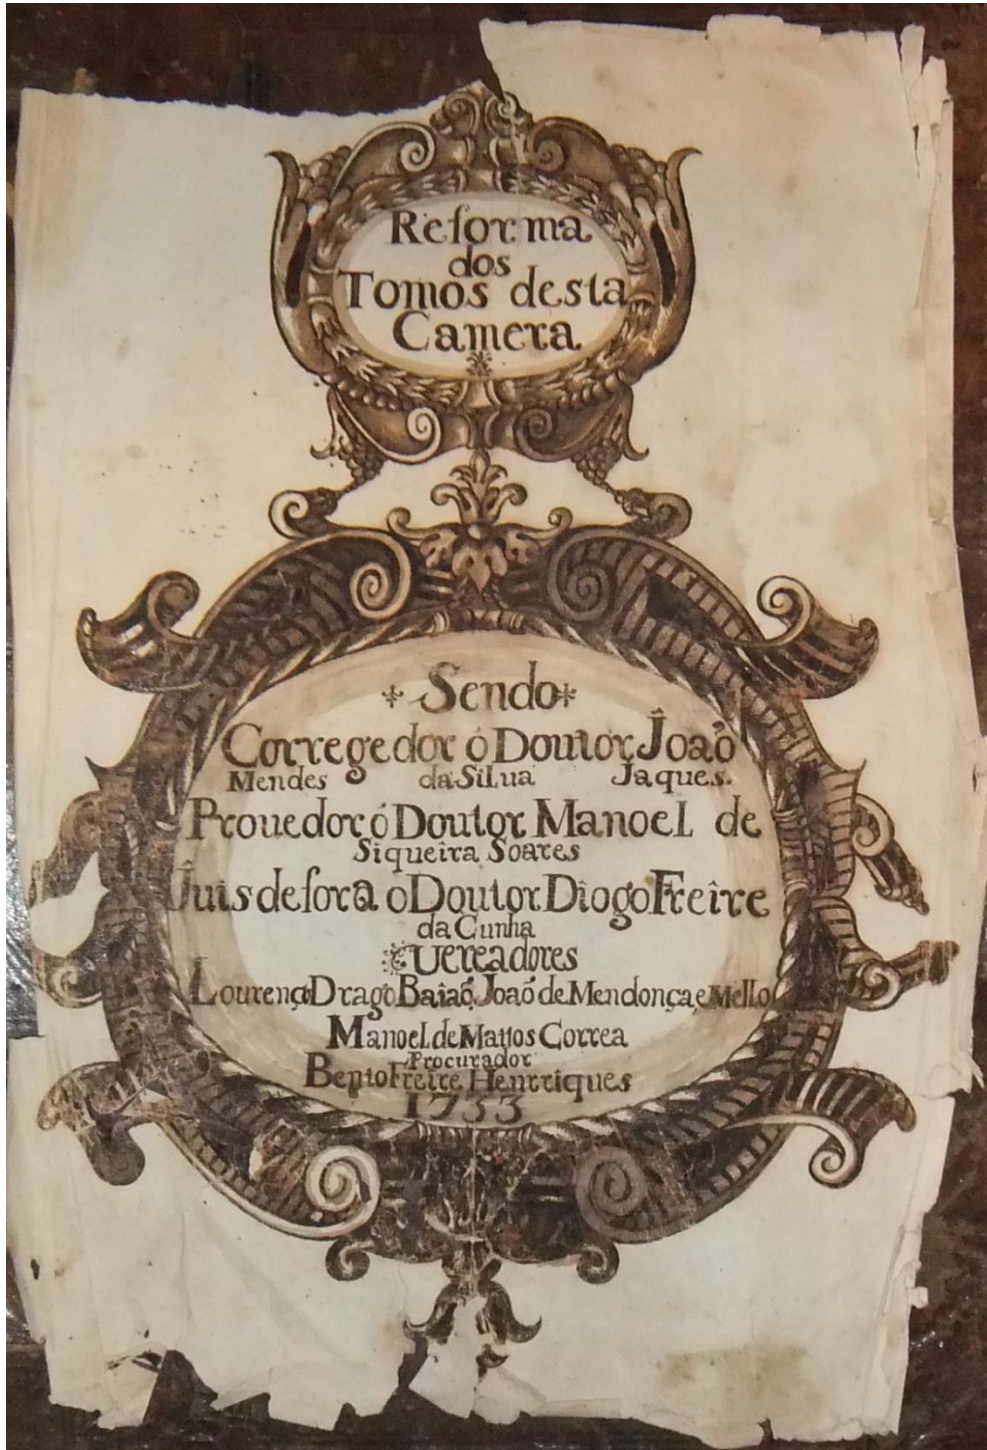 Reforma
dos
Tomos desta
Camera
Sendo
Corregedor ó Doutor Ĵoaõ
Mendes da Silua Jaques.
Prouedor ó Doutor Manoel de
Siqueira Soares
Juis de fora o Doutor Diogo Freire
da Cunha
Uereadores
Lourenço Drago Baiaõ, Joaõ de Mendonça, e Mello
Manoel de Mattos Correa
Procurador
Bento Freire Henrriques
1733